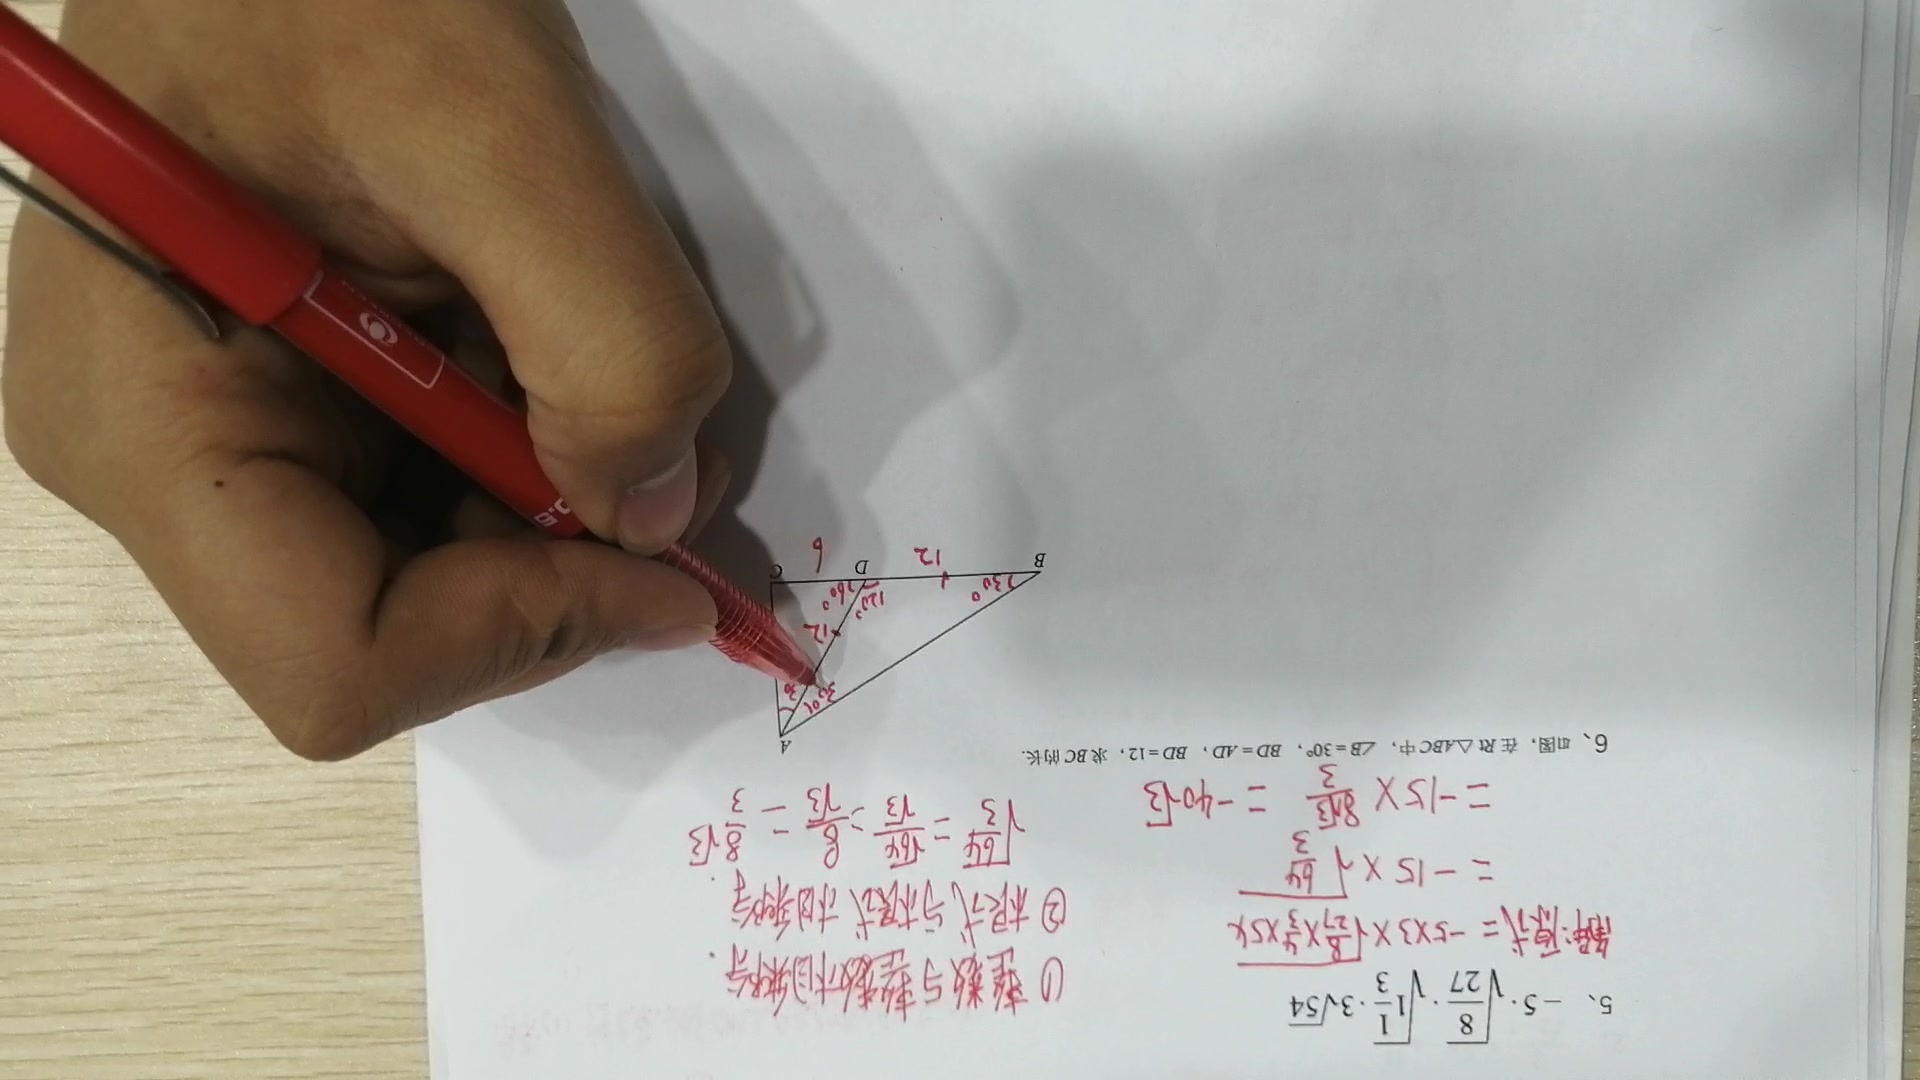 5、 −5·√(8/27)·√(1 1/3)·3√54
解:原式 = −5×3×√(8/27×4/3×54)
= −15×√(64/3)
= −15×8√3/3 = −40√3
① 整数与整数相乘.
② 根式与根式相乘.
√(64/3) = √64/√3 = 8/√3 = 8√3/3
6、如图,在Rt△ABC中,∠B=30°,BD=AD,BD=12,求BC的长.
A
30°
30
12
120°
60°
30°
B
D
C
12
6
0.5